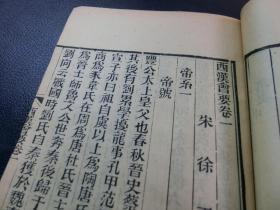 西漢會要卷一
宋徐
帝系一
帝號
豐公太上皇父也春秋晉史蔡
其後有劉累學擾龍事孔甲范
宣子亦曰祖自虞以上爲陶唐氏
商爲豕韋氏在周爲唐杜氏晉
爲晉士師魯文公世奔秦後歸于
劉向云戰國時劉氏自秦獲於魏